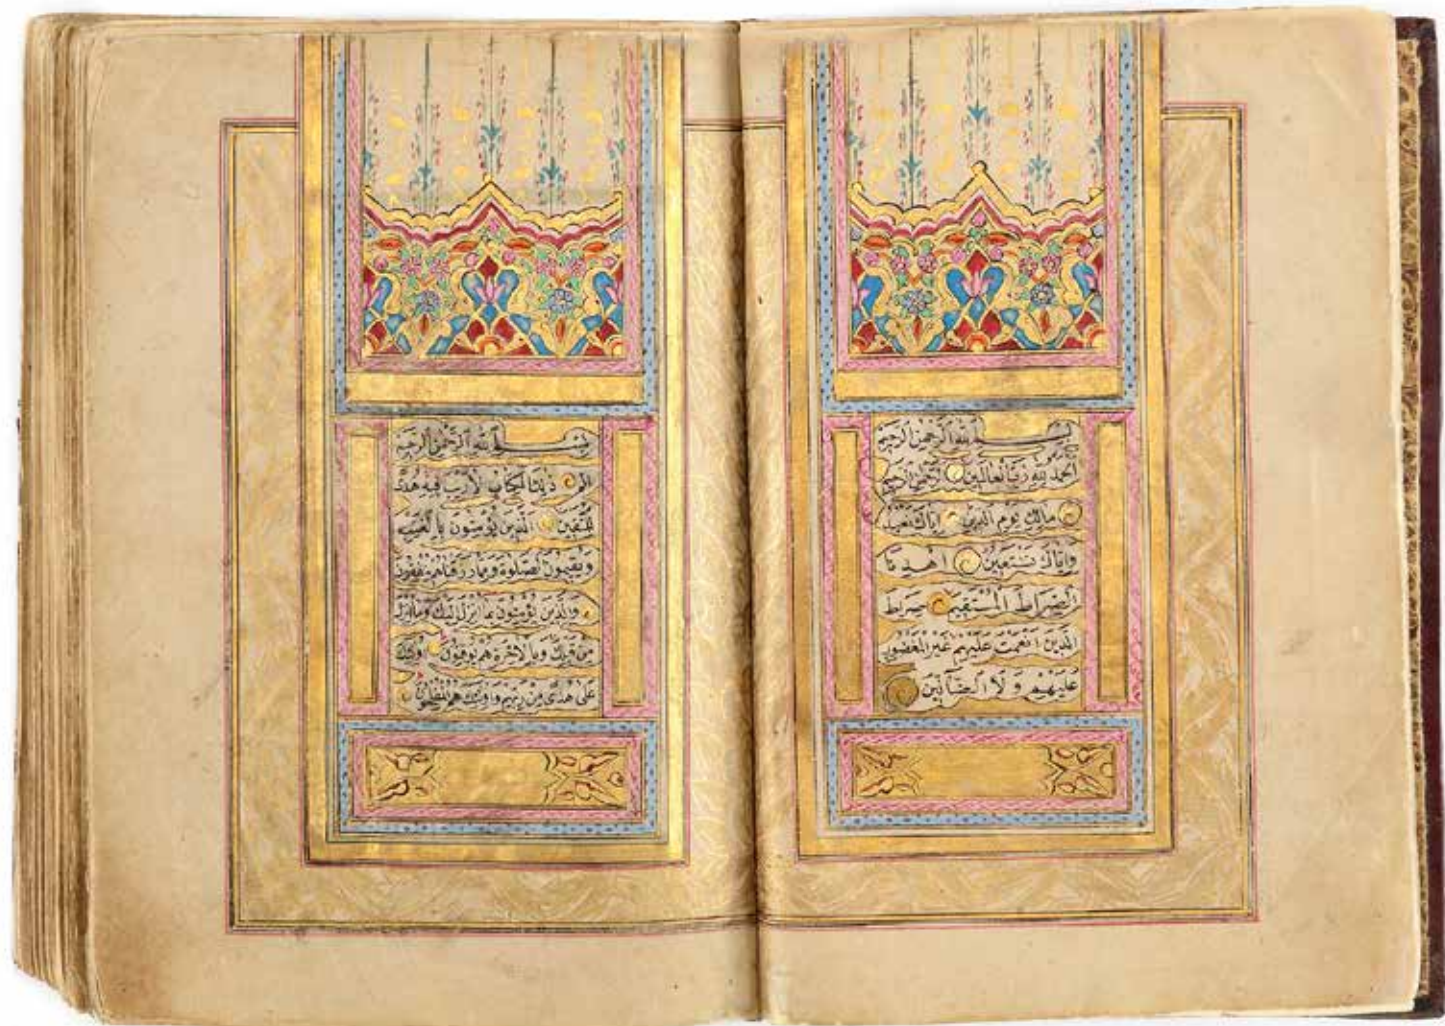 بسم الله الرحمن الرحيم
الحمد لله رب العالمين الرحمن الرحيم
مالك يوم الدين اياك نعبد
واياك نستعين اهدنا
الصراط المستقيم صراط
الذين انعمت عليهم غير المغضوب
عليهم ولا الضالين
بسم الله الرحمن الرحيم
الم ذلك الكتاب لا ريب فيه هدى
للمتقين الذين يؤمنون بالغيب
ويقيمون الصلوة ومما رزقناهم ينفقون
والذين يؤمنون بما انزل اليك وما انزل
من قبلك وبالاخرة هم يوقنون اولئك
على هدى من ربهم واولئك هم المفلحون